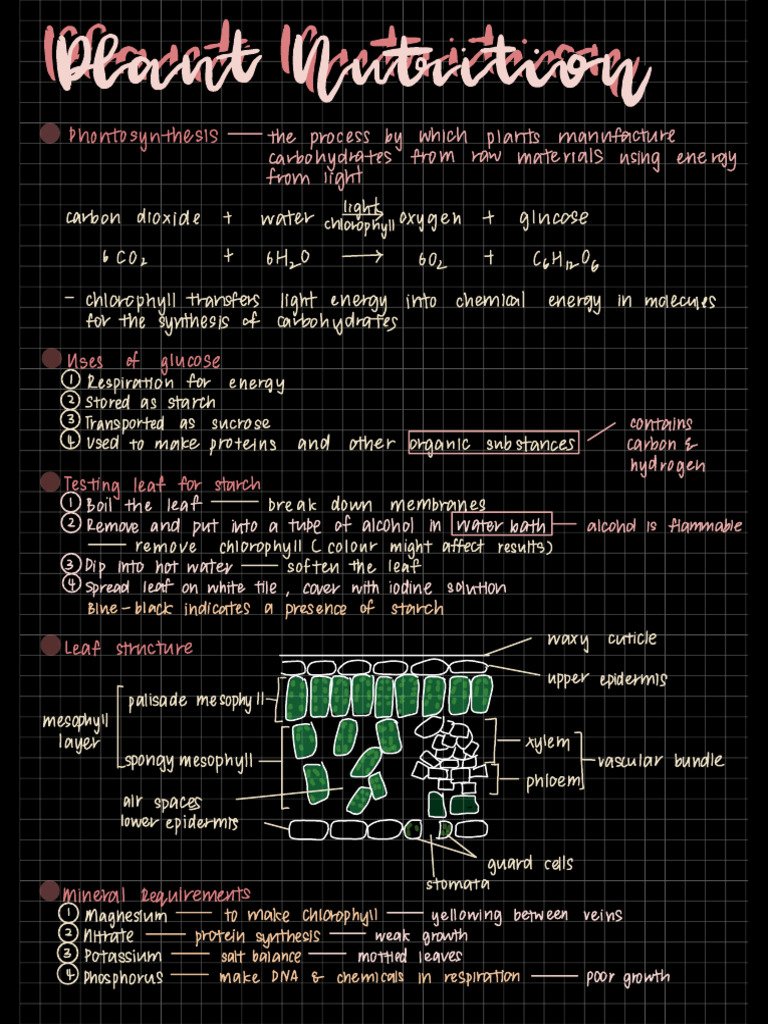 Plant Nutrition
Phontosynthesis — the process by which plants manufacture
carbohydrates from raw materials using energy
from light
light
carbon dioxide + water → oxygen + glucose
chlorophyll
6 CO₂ + 6H₂O → 6O₂ + C₆H₁₂O₆
- chlorophyll transfers light energy into chemical energy in molecules
for the synthesis of carbohydrates
Uses of glucose
① Respiration for energy
② Stored as starch
③ Transported as sucrose
④ Used to make proteins and other organic substances
contains
carbon &
hydrogen
Testing leaf for starch
① Boil the leaf — break down membranes
② Remove and put into a tube of alcohol in water bath — alcohol is flammable
— remove chlorophyll ( colour might affect results)
③ Dip into hot water — soften the leaf
④ Spread leaf on white tile, cover with iodine solution
Blue-black indicates a presence of starch
Leaf structure
waxy cuticle
upper epidermis
palisade mesophyll
mesophyll
layer
spongy mesophyll
xylem
phloem
vascular bundle
air spaces
lower epidermis
guard cells
stomata
Mineral Requirements
① Magnesium — to make chlorophyll — yellowing between veins
② Nitrate — protein synthesis — weak growth
③ Potassium — salt balance — mottled leaves
④ Phosphorus — make DNA & chemicals in respiration — poor growth